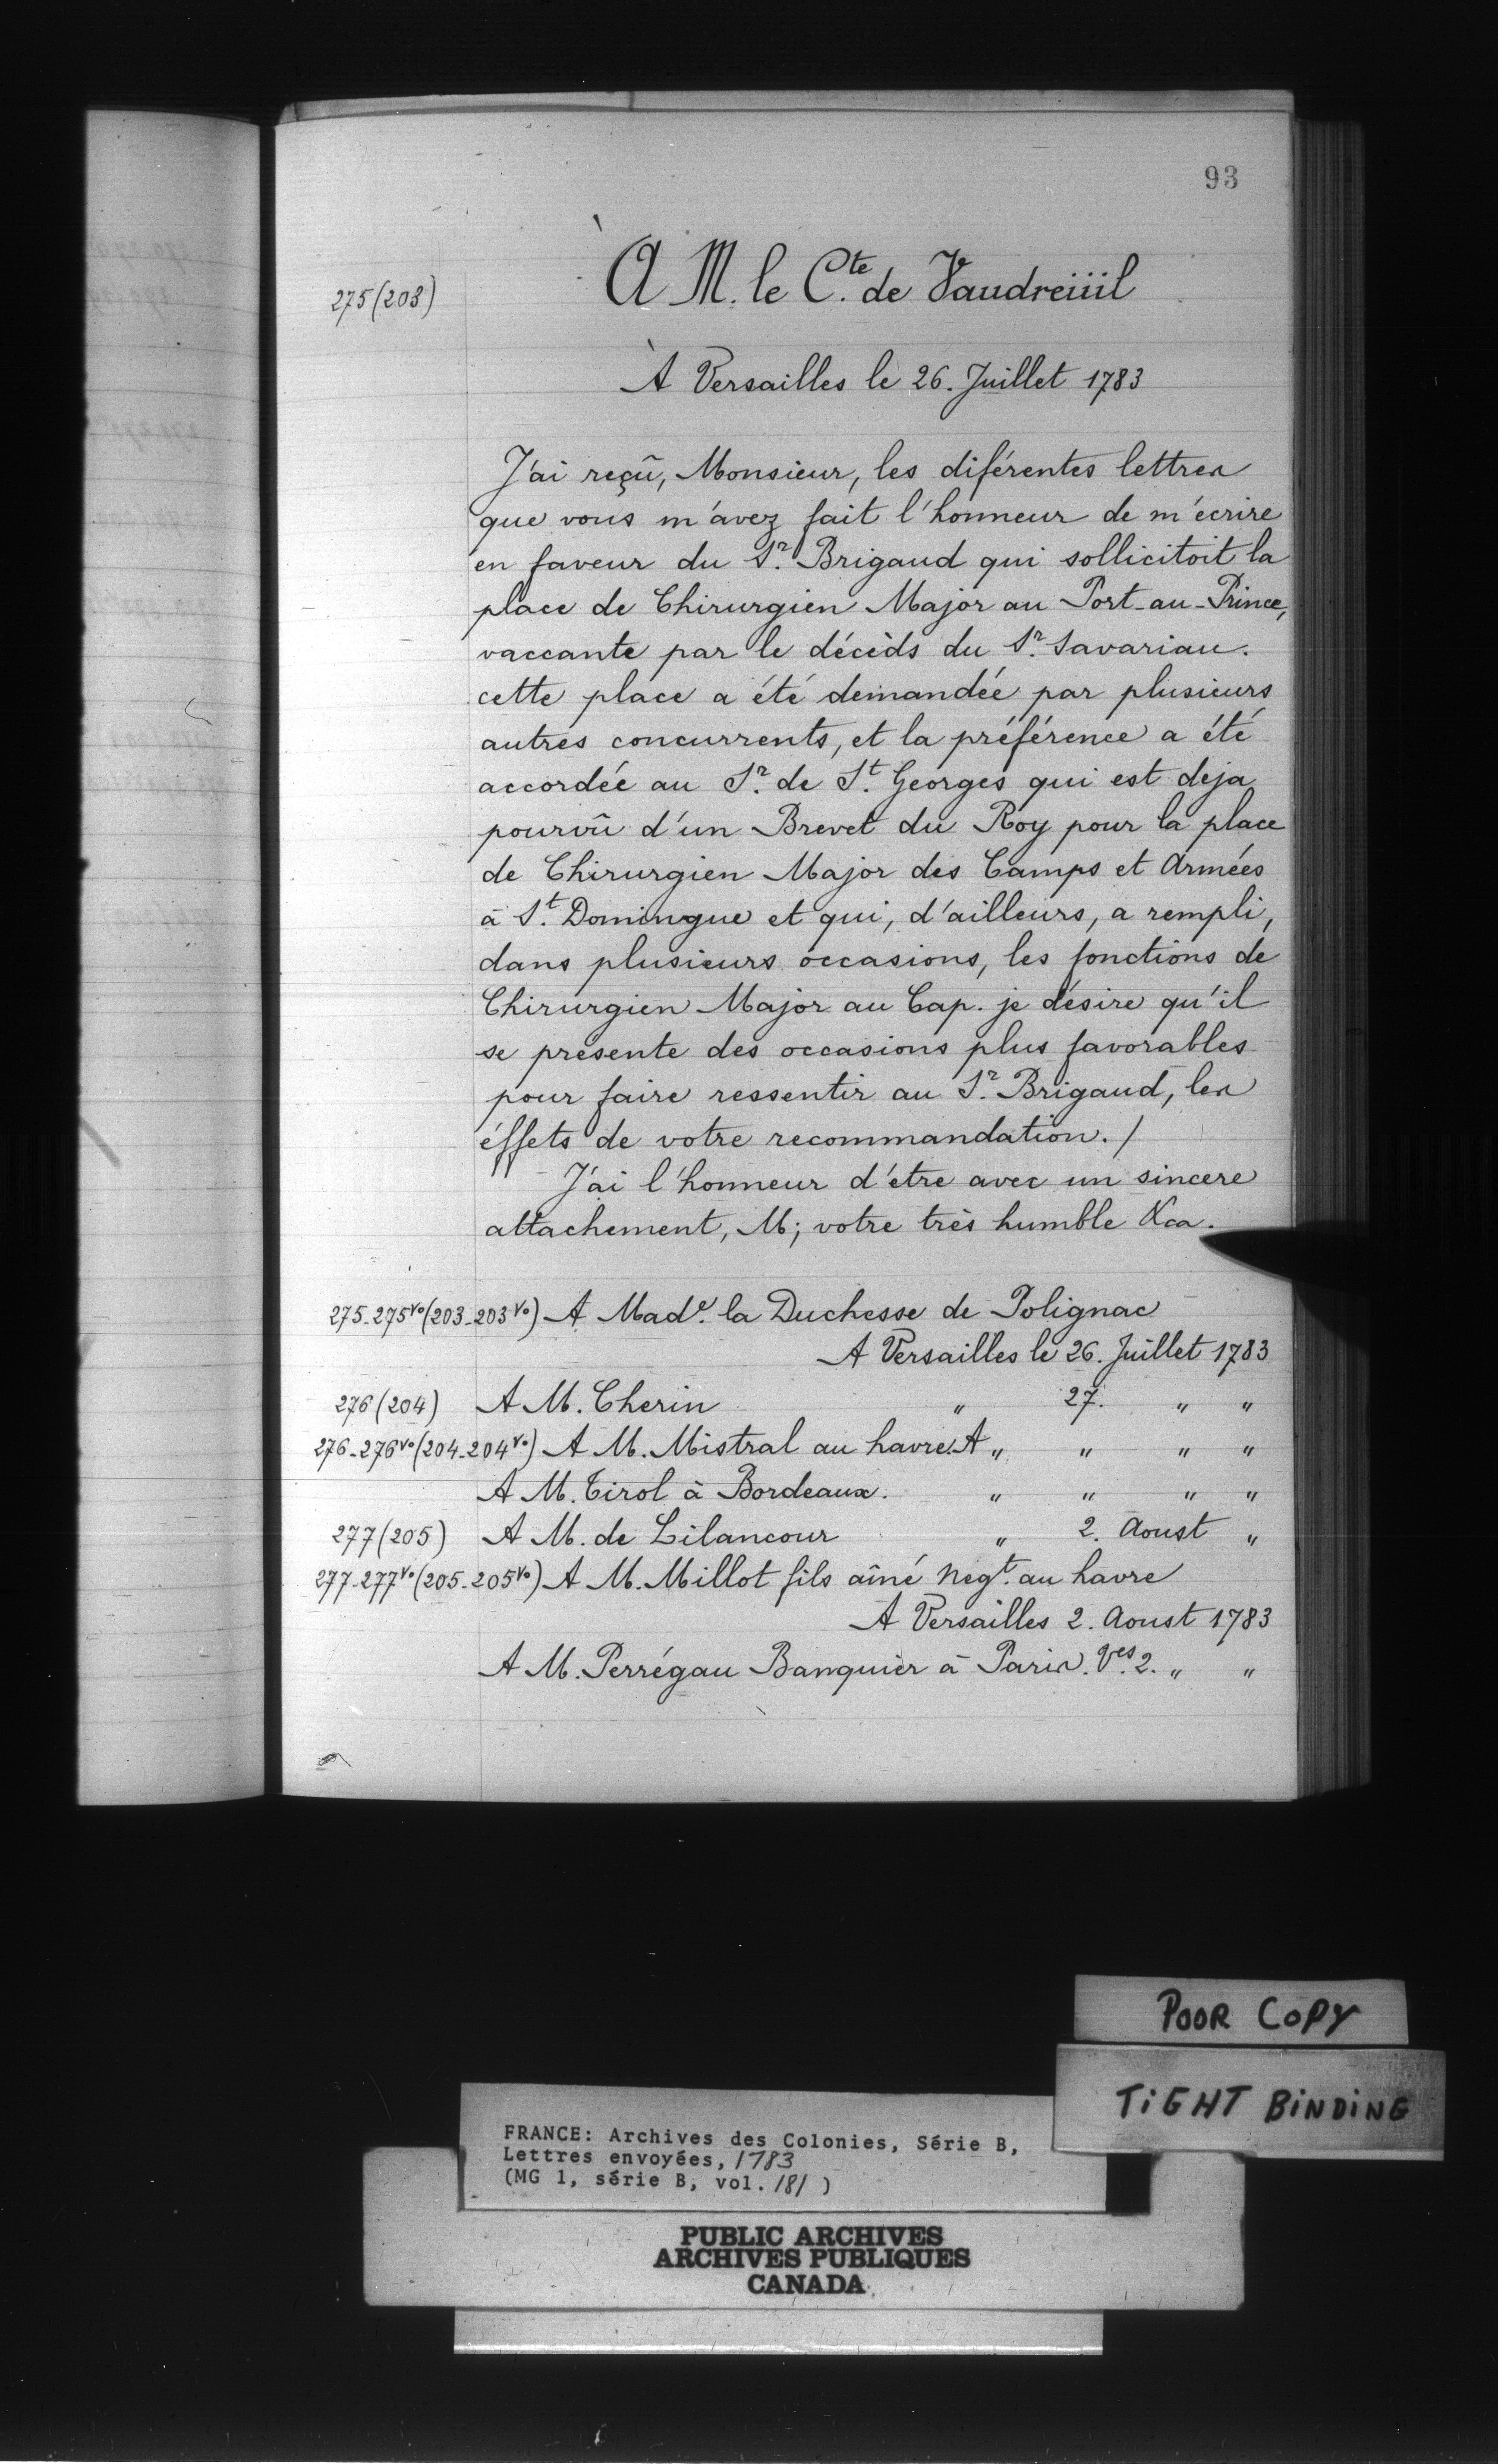 93
275(203)
À M. le Cte. de Vaudreüil
À Versailles le 26. Juillet 1783
J'ai reçû, Monsieur, les diférentes lettres
que vous m'avez fait l'honneur de m'écrire
en faveur du Sr. Brigaud qui sollicitoit la
place de Chirurgien Major au Port-au-Prince,
vaccante par le décèds du Sr. Savariau.
cette place a été demandée par plusieurs
autres concurrents, et la préférence a été
accordée au Sr. de St. Georges qui est deja
pourvû d'un Brevet du Roy pour la place
de Chirurgien Major des Camps et Armées
à St. Domingue et qui, d'ailleurs, a rempli,
dans plusieurs occasions, les fonctions de
Chirurgien Major au Cap. je désire qu'il
se présente des occasions plus favorables
pour faire ressentir au Sr. Brigaud, les
éffets de votre recommandation. /
J'ai l'honneur d'être avec un sincere
attachement, M; votre très humble &ca.
275-275vo(203-203vo) A Made. la Duchesse de Polignac
A Versailles le 26. Juillet 1783
276(204) A M. Cherin " 27. " "
276-276vo(204-204vo) A M. Mistral au havre. A " " " "
A M. Tirol à Bordeaux. " " " "
277(205) A M. de Lilancour " 2. Aoust "
277-277vo(205-205vo) A M. Millot fils aîné negt. au havre
A Versailles 2. Aoust 1783
A M. Perrégau Banquier à Paris. Ves. 2. " "
POOR COPY
TIGHT BINDING
FRANCE: Archives des Colonies, Série B,
Lettres envoyées, 1783
(MG 1, série B, vol. 181 )
PUBLIC ARCHIVES
ARCHIVES PUBLIQUES
CANADA